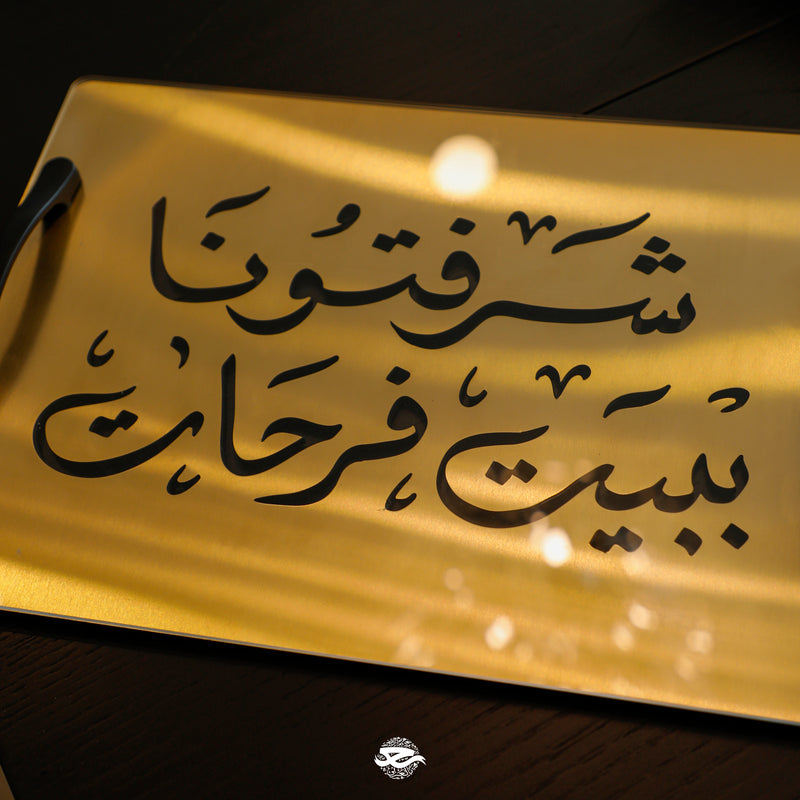 شَرفتُونَا
ببيَت فرحَات